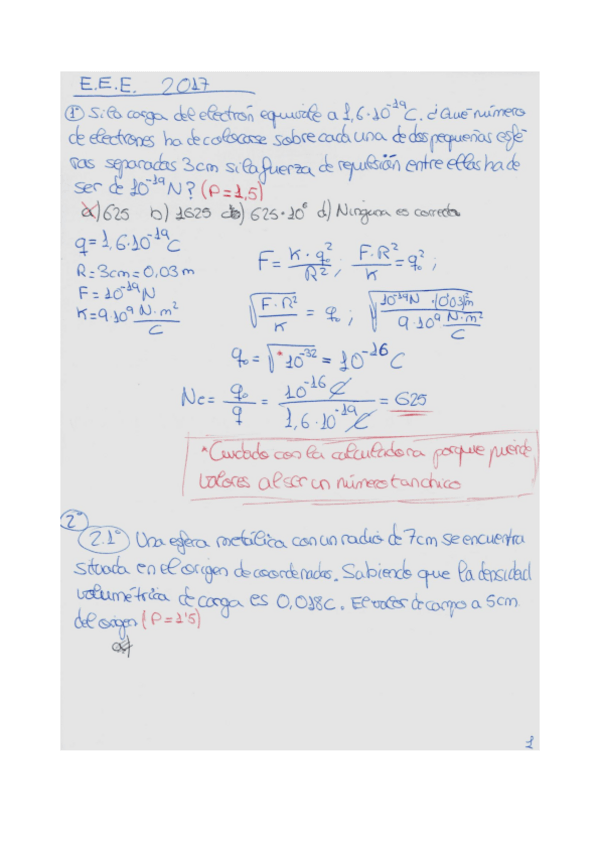 E.E.E. 2017
1º Si la carga del electrón equivale a 1,6·10⁻¹⁹C. ¿Qué número
de electrones ha de colocarse sobre cada una de dos pequeñas esfe-
ras separadas 3cm si la fuerza de repulsión entre ellas ha de
ser de 10⁻¹⁹N? (P=1,5)
a) 625 b) 1625 c) 625·10⁶ d) Ninguna es correcta
q = 1,6·10⁻¹⁹C
R = 3cm = 0,03m
F = 10⁻¹⁹N
K = 9·10⁹ N·m²/C
F = K·q₀²/R² ; F·R²/K = q₀² ;
√(F·R²/K) = q₀ ; √(10⁻¹⁹N·(0'03)²m/9·10⁹ N·m²/C)
q₀ = √*10⁻³² = 10⁻¹⁶C
Nc = q₀/q = 10⁻¹⁶C/1,6·10⁻¹⁹C = 625
*Cuidado con la calculadora porque pierde
valores al ser un número tan chico
2º
2.1º Una esfera metálica con un radio de 7cm se encuentra
situada en el origen de coordenadas. Sabiendo que la densidad
volumétrica de carga es 0,018C. El valor de campo a 5cm
del origen (P=1'5)
a)
1